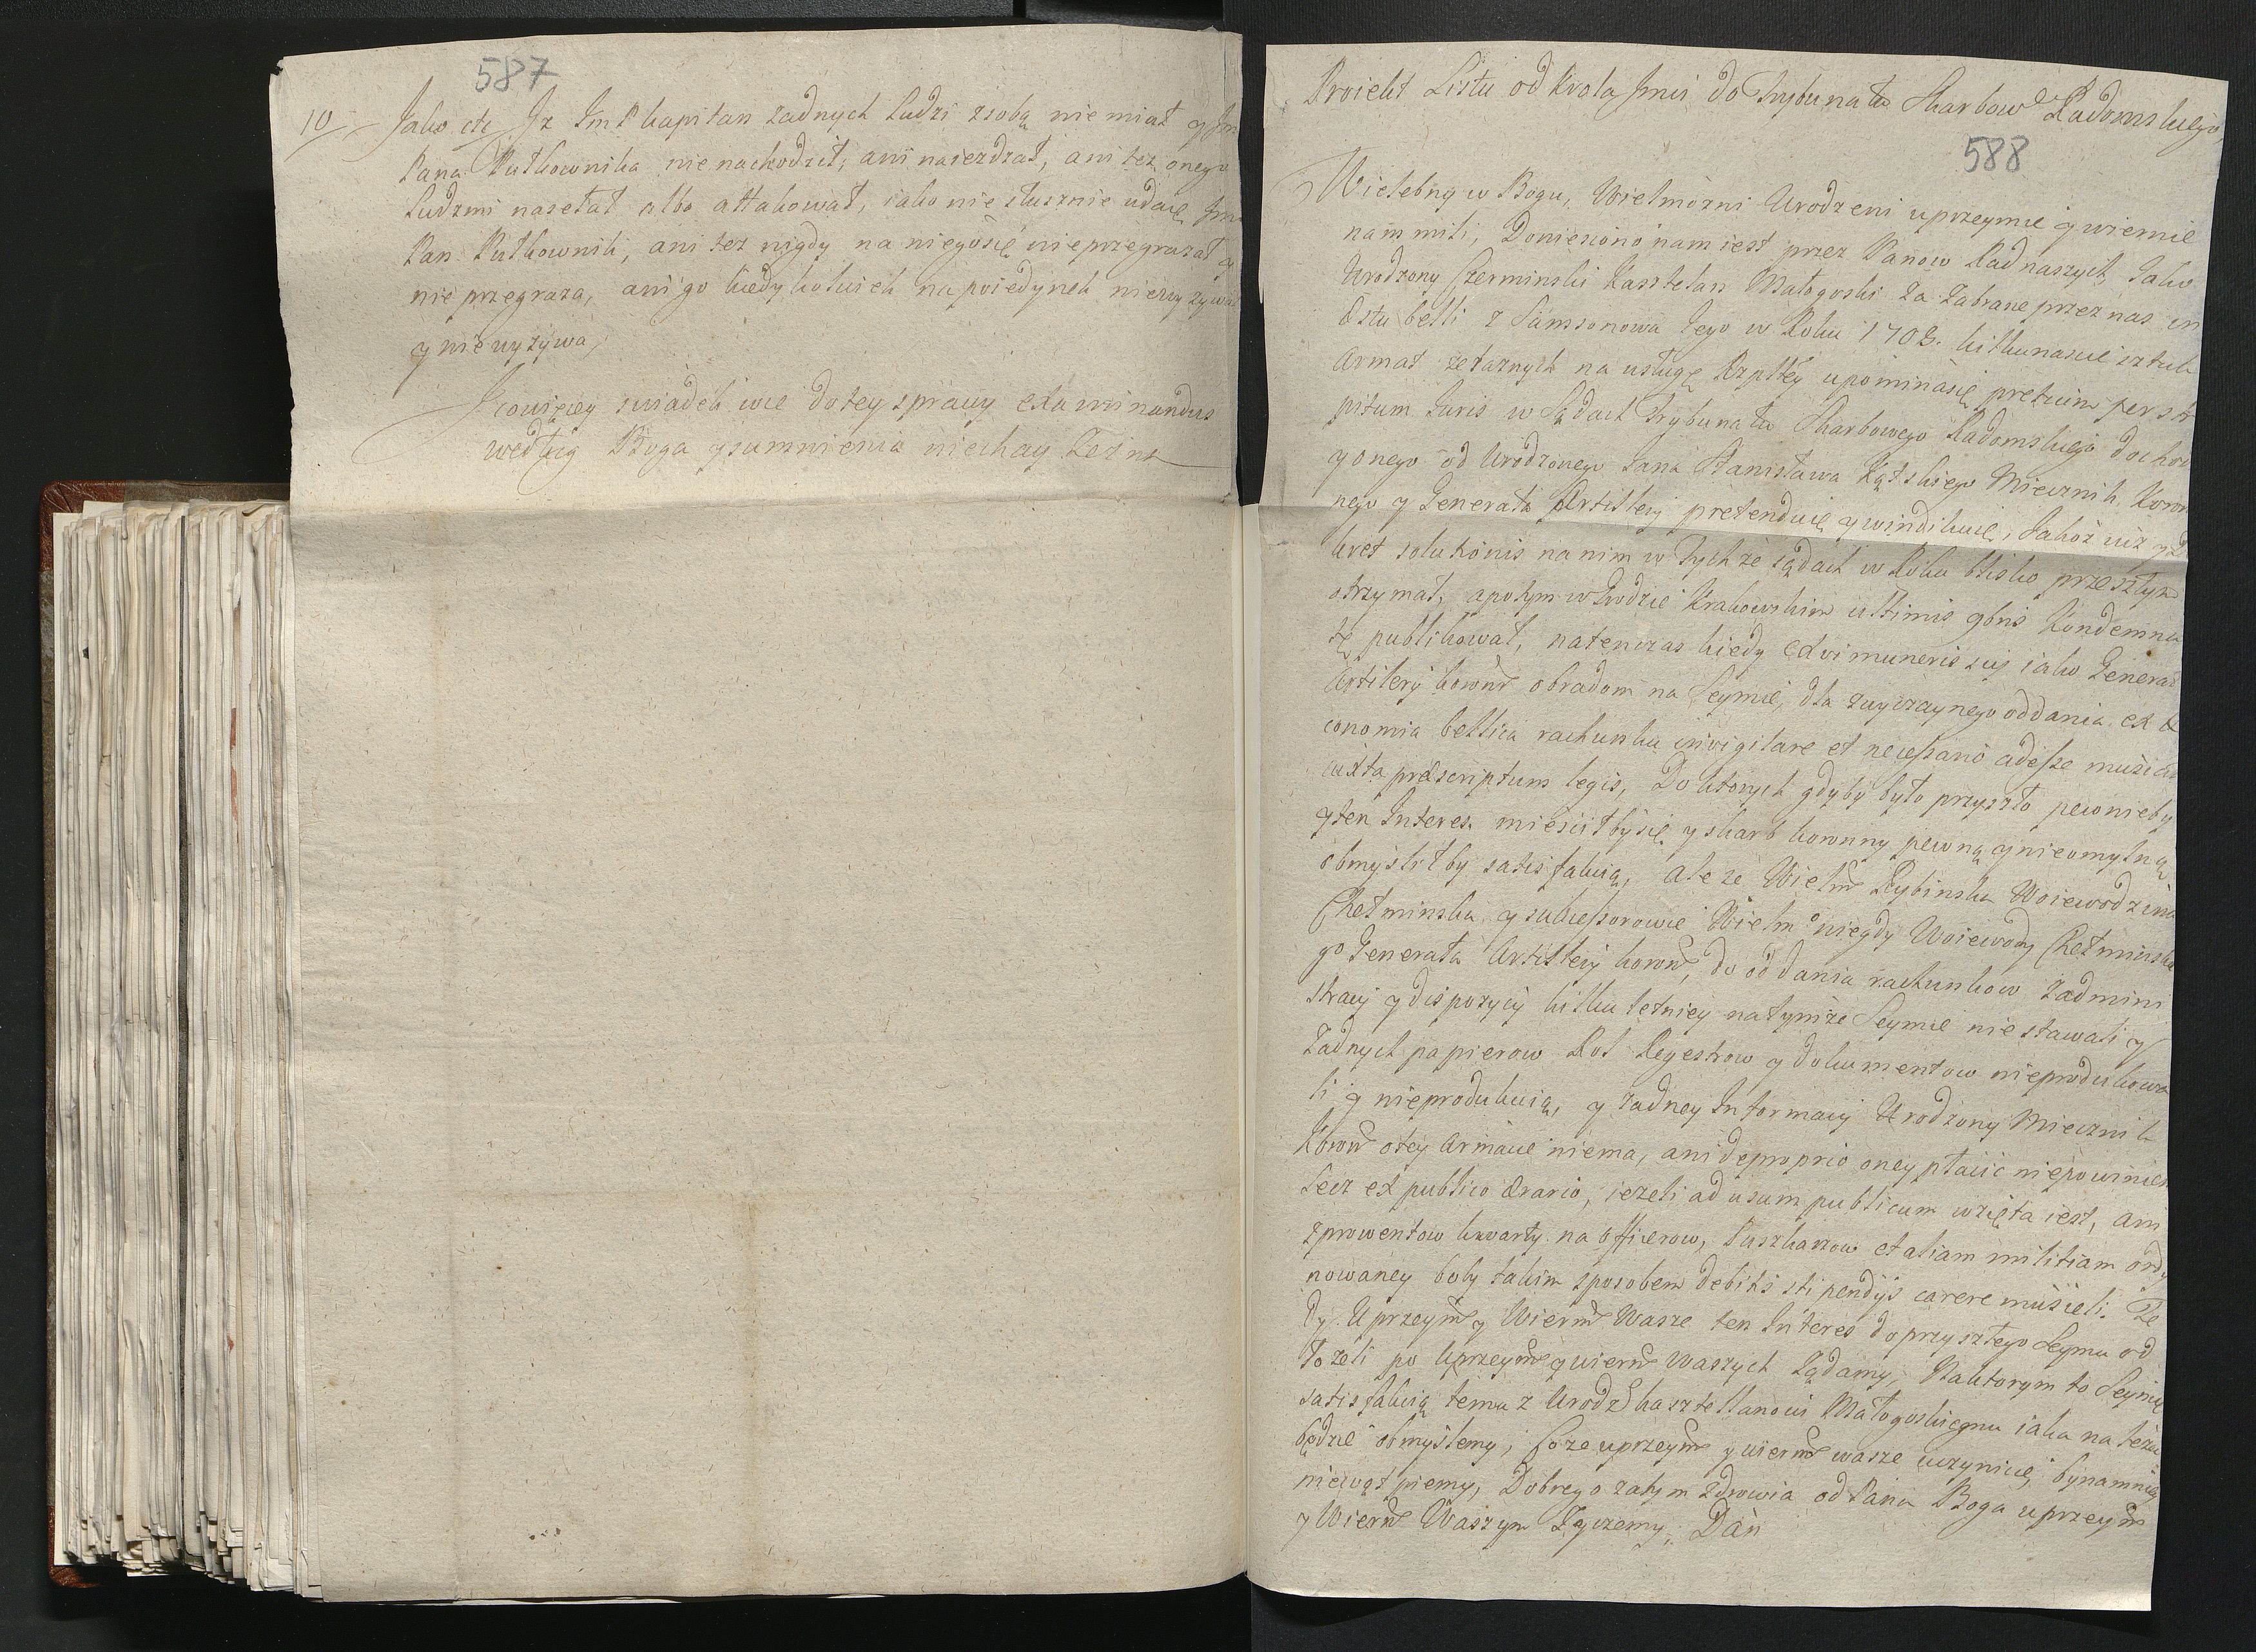 587
10 Jako etc Jż Jm P kapitan żadnych ludzi zsobą nie miał y Jm
Pana Pułkownika nie nachodził, ani naiezdzał, ani tez onego
ludzmi nasełał albo attakował, iako nie słusznie udaie Jm
Pan Pułkownik, ani tez nigdy na niegosię nieprzegrazał y
nie przegraza, ani go kiedykolwiek napoiedynek niewyzywał
y nie wyzywa,
Jcowięcey swiadek wie dotey sprawy examinandus
według Boga ysumnienia niechay zezna
Proiekt Listu od Krola Jmci do Trybunału Skarbowo Radomskiego,
588
Wielebny w Bogu, Wielmożni Urodzeni uprzeymie y wiernie
nam mili, Doniesiono nam iest przez Panow Rad naszych, Jako
Urodzony Czerminski Kasztelan Małogoski za zabrane przez nas in
Æstu belli z Samsonowa Jego w Roku 1703. kilkanascie sztuk
Armat żelaznych na usługę Rzptey upominasię pretium per stre
pitum Juris w Sądach Trybunału Skarbowego Radomskiego dochod
y onego od Urodzonego Jana Stanisława Kątskiego Miecznik. Koron
nego y Generała Artillery pretenduie ywindikuie, Jakoż iuż y De
kret solutionis na nim w Tychże sądach w Roku blisko przeszłym
otrzymał, apotym w Grodzie Krakowskim ultimis gbris Kondemna
tę publikował, natenczas kiedy ex vi muneris sui iako Generał
Artilery koronr obradom na Seymie, dla zwyczaynego oddania ex œ
conomia bellica rachunku invigilare et necessario adesse musiał
iuxta præscriptum legis, Do ktorych gdyby było przyszło pewnieby
yten Interes miescił bysię y skarb koronny pewną y nieomylną
obmyslił by satisfakcią, ale ze Wielmr Rybinska Woiewodzina
Chełminska y sukcessorowie Wielmo niegdy Woiewody Chełminskie
go Generała Artillery koronr, do oddania rachunkow zadmini
stracij y dispozycij kilkuletniey natymże Seymie nie stawali y
żadnych papierow Rol Regestrow y dokumentow nieprodukowa
li y nieprodukuią, y zadney Informacij Urodzony Miecznik
Koronr otey Armacie niema, ani de proprio oney płacic niepowinien
lecz ex publico ærario, iezeli ad usum publicum wzięta iest, ani
zprowentow kwarty na officerow, Puszkarzow et aliam militiam ordy
nowaney boby takim sposobem debitis stipendijs carere musieli. Te
dy Uprzeymr y Wiernr Wasze ten Interes doprzyszłego Seymu od
łożeli po Uprzeymr ywiernr waszych żądamy, Naktorym to Seymie
satisfakcią temuz Urodzo kasztellanowi Małogoskiemu iaka należe
będzie obmyslemy, Coze uprzeymr ywiernr wasze uczynicie, bynamniey
niewątpiemy, Dobrego zatym zdrowia od Pana Boga uprzeymr
y Wiernr Waszym Zyczemy, Dan